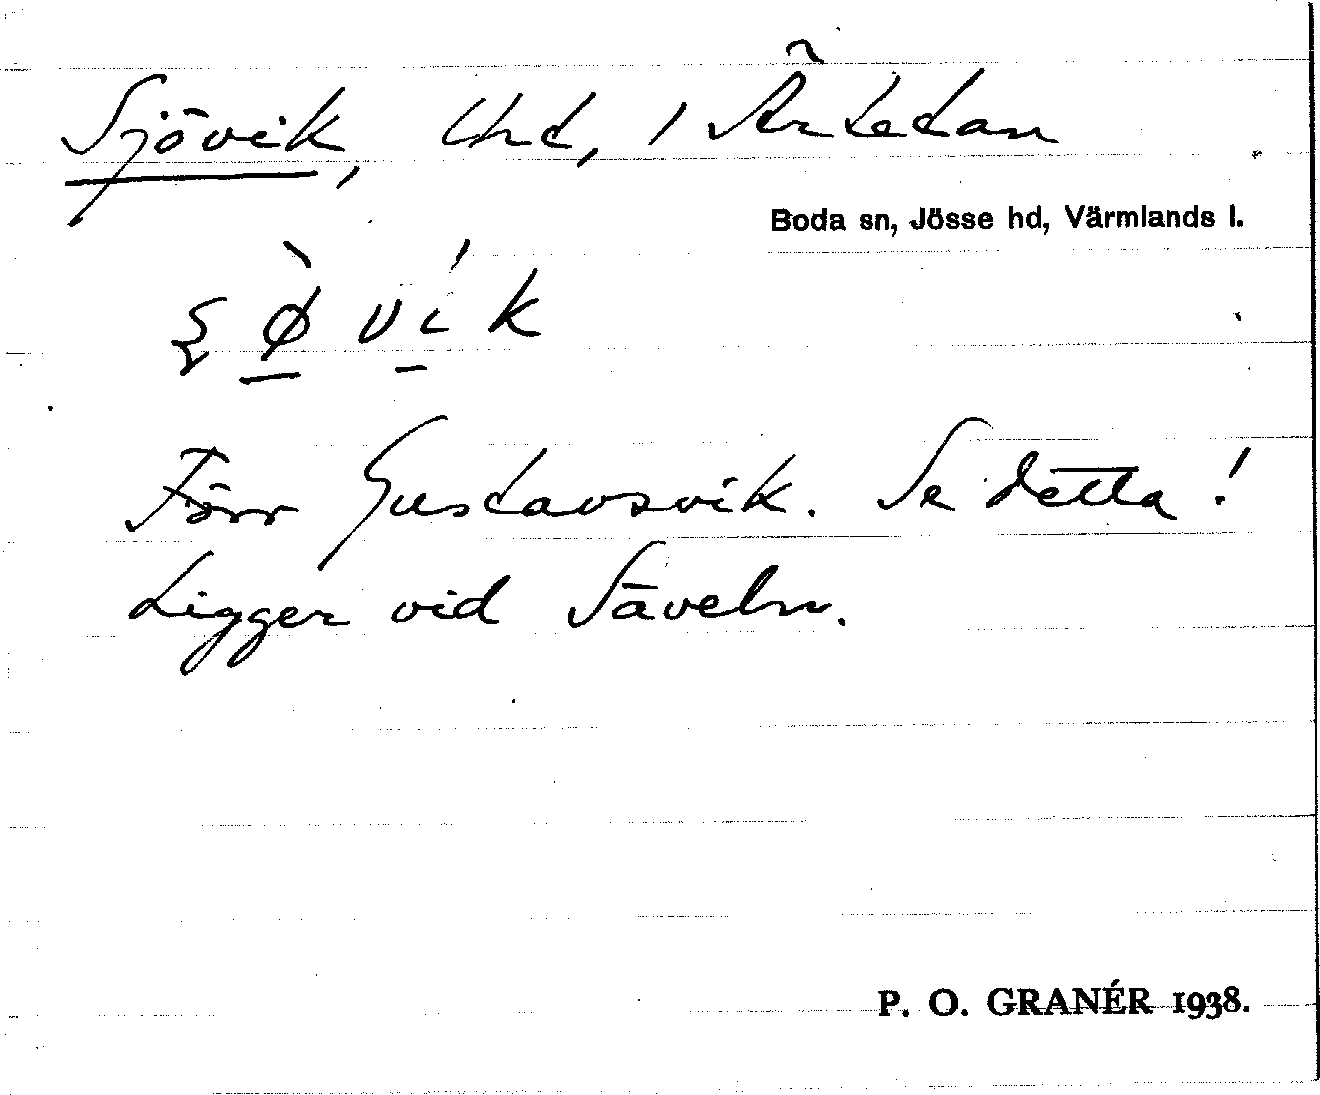 Sjövik, Uhd, / Ärtedan
Boda sn, Jösse hd, Värmlands l.
Förr Gustavsvik. Se detta!
Ligger vid Säveln.
P. O. GRANÉR 1938.